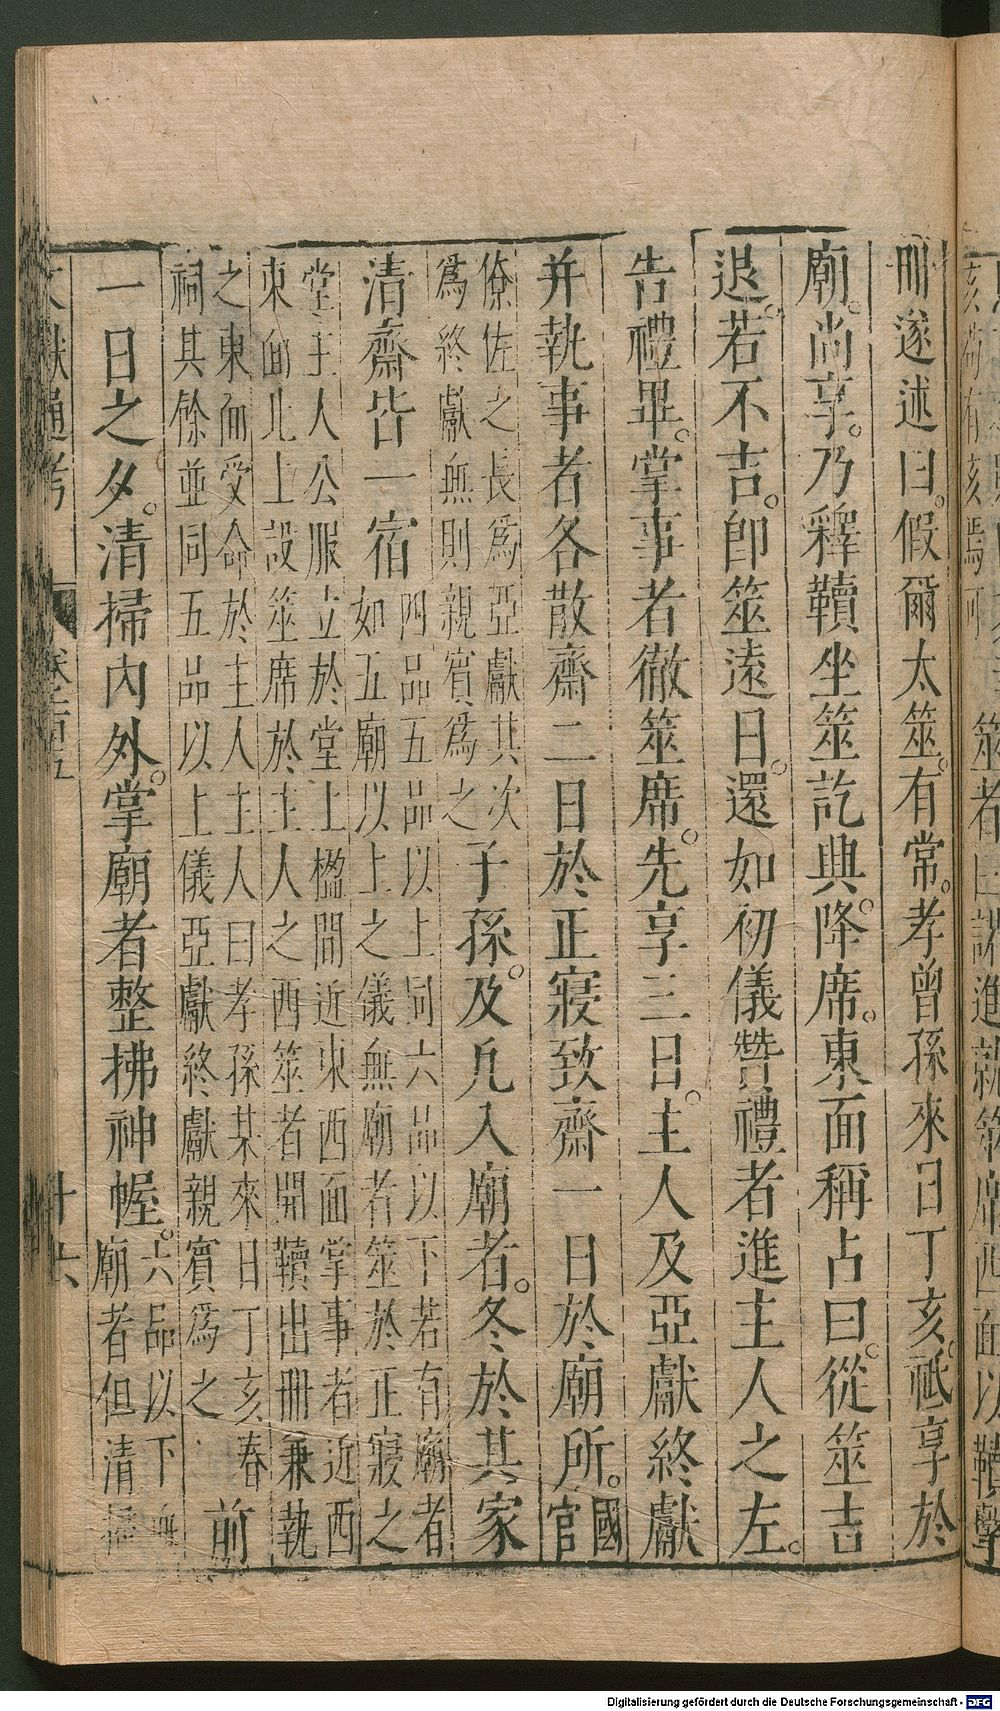 冊遂述曰假爾太筮有常孝曾孫來日丁亥祗享於
廟尚享乃釋韇坐筮訖興降席東面稱占曰從筮吉
退若不吉卽筮遠日還如初儀贊禮者進主人之左
告禮畢掌事者徹筮席先享三日主人及亞獻終獻
并執事者各散齋二日於正寢致齋一日於廟所國官
僚佐之長爲亞獻其次
爲終獻無則親賓爲之
子孫及凡入廟者冬於其家
清齋皆一宿
四品五品以上同六品以下若有廟者
如五廟以上之儀無廟者筮於正寢之
堂主人公服立於堂上楹間近東西面掌事者近西
東面北上設筮席於主人之西筮者開韇出冊兼執
之東面受命於主人主人曰孝孫某來日丁亥春
祠其餘並同五品以上儀亞獻終獻親賓爲之
前
一日之夕清掃內外掌廟者整拂神幄
六品以下無
廟者但清掃
文獻通考 卷 五 十六
筮者曰諾進就筮席西面以韇擊
Digitalisierung gefördert durch die Deutsche Forschungsgemeinschaft - DFG